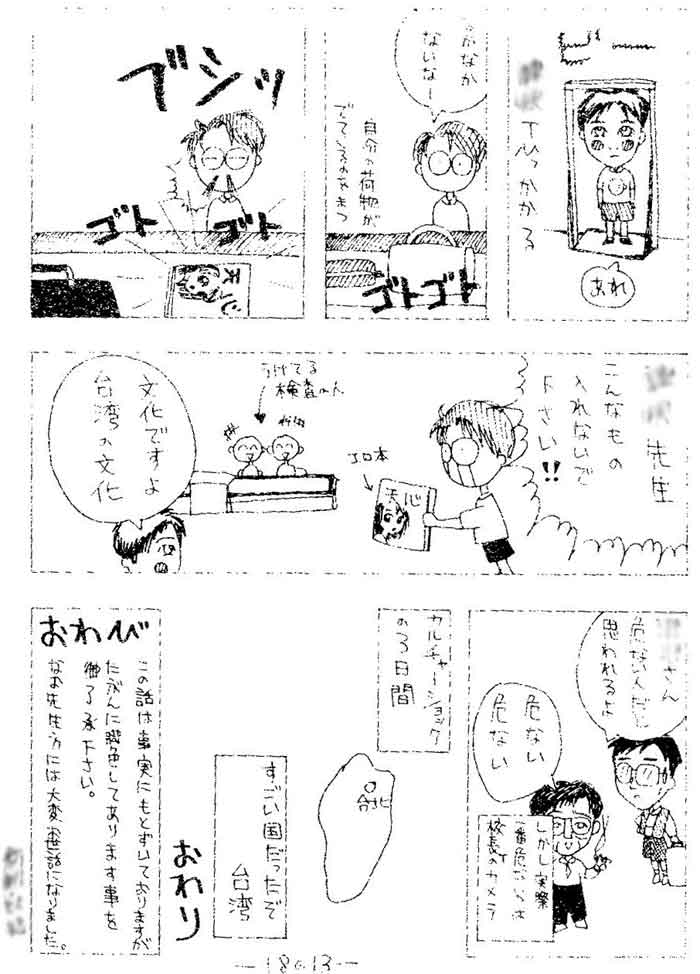 でひっかかる
あれ
かなか
ないなー
自分の荷物が
でてくるのをまつ
ゴトゴト
ブシッ
ゴト
ゴト
天心
先生
こんなもの
入れないで
下さい!!
エロ本
天心
うけてる
検査の人
文化ですよ
台湾の文化
さん
危ない人だと
思われるよ
危ない
危ない
しかし実際
一番危ないのは
校長のカメラ
カルチャーショック
の3日間
台北
すごい国だったぞ
台湾
おわり
おわび
この話は事実にもとずいておりますが
たぶんに脚色してあります事を
御了承下さい。
なお先生方には大変お世話になりました。